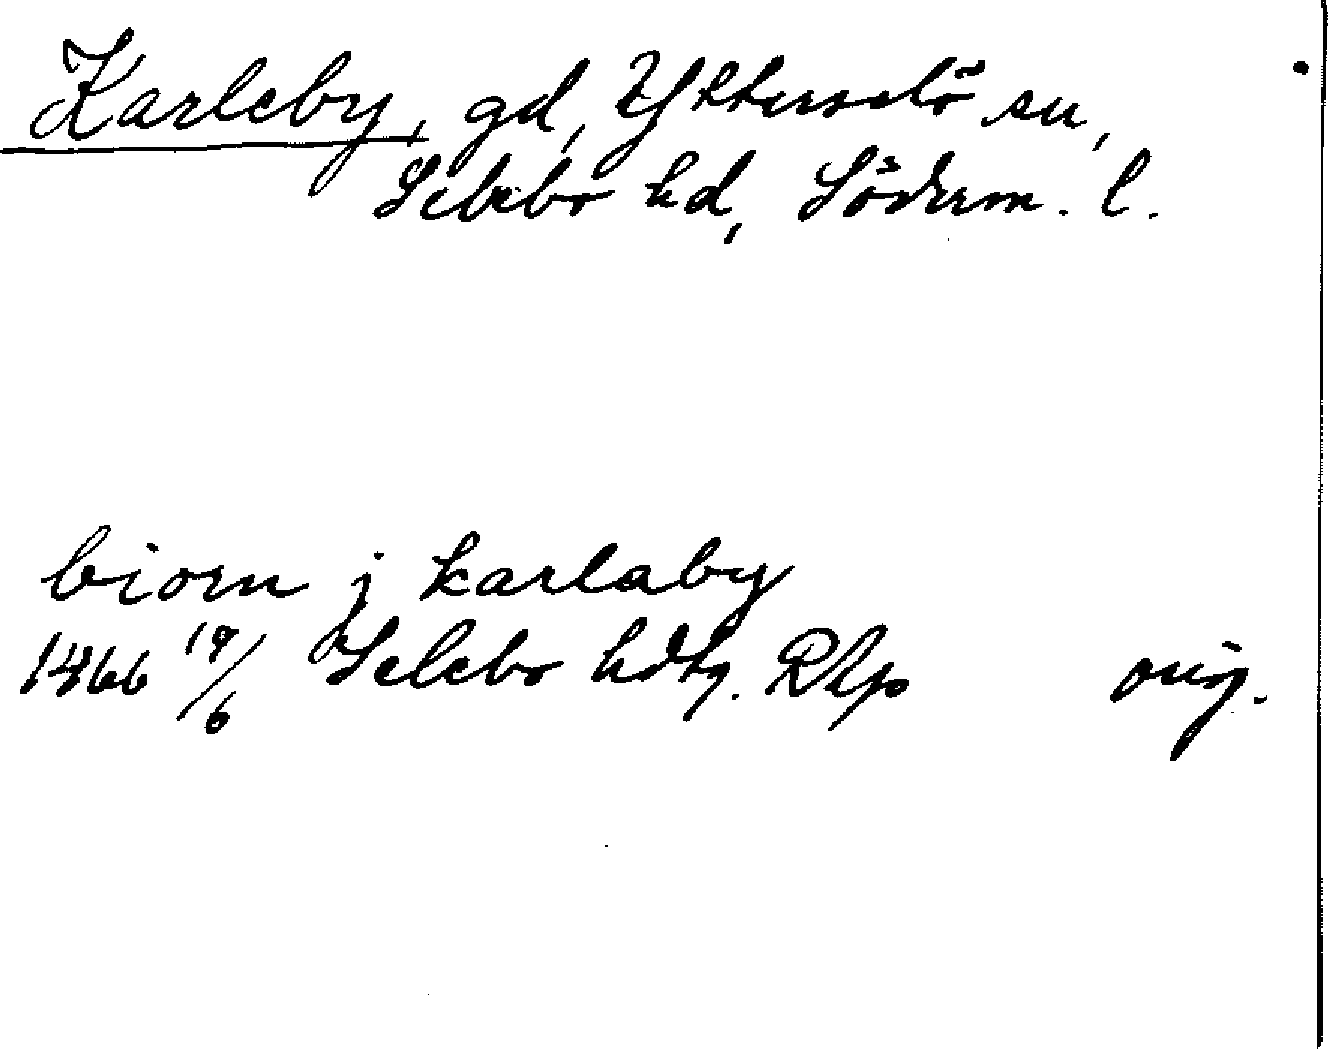 Karleby, gd, Ytterselö sn,
Selebo hd, Söderm. l.
biorn j karlaby
1466 19/6 Selebo hdtg. RAp orig.